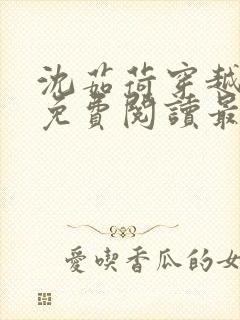 沈茹荷穿越
免費閱讀最
愛喫香瓜的女